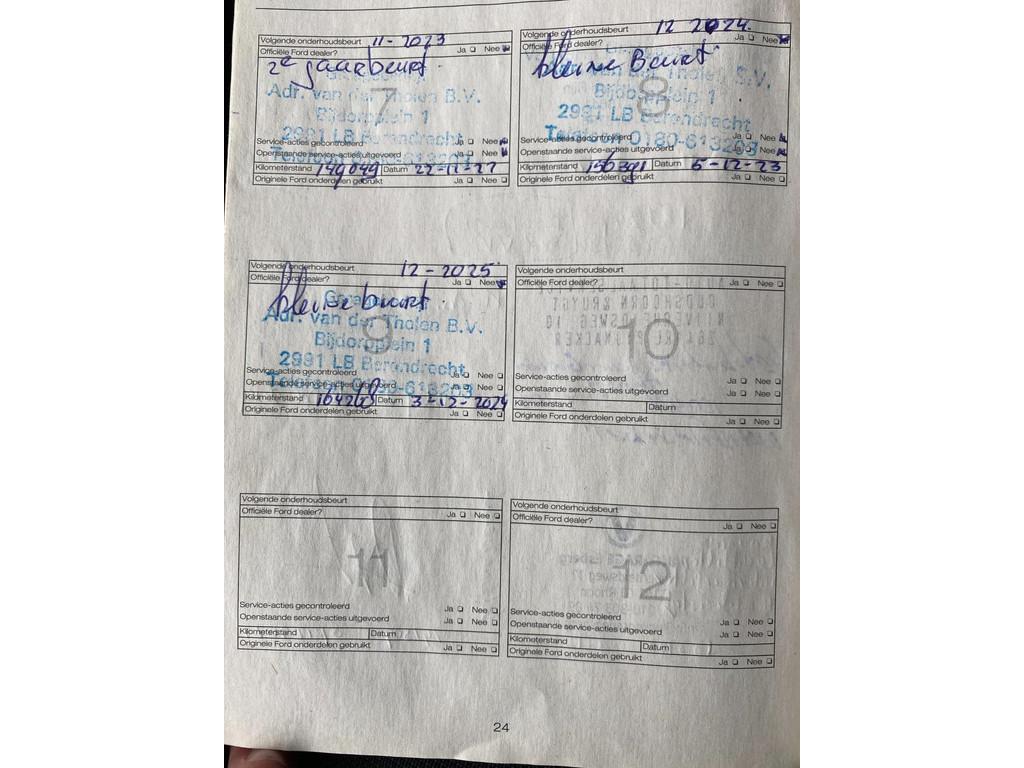 Volgende onderhoudsbeurt 11-2023
Officiële Ford dealer? Ja Nee
2e Jaarbeurt
7
Adr. van der Tholen B.V.
Bijdorpplein 1
2991 LB Barendrecht
Service-acties gecontroleerd Ja Nee
Openstaande service-acties uitgevoerd Ja Nee
Kilometerstand 149049 Datum 22-11-22
Originele Ford onderdelen gebruikt Ja Nee
Volgende onderhoudsbeurt 12 2024.
Officiële Ford dealer? Ja Nee
kleine Beurt
8
van der Tholen B.V.
Bijdorpplein 1
2991 LB Barendrecht
Telefoon 0180-613203
Service-acties gecontroleerd Ja Nee
Openstaande service-acties uitgevoerd Ja Nee
Kilometerstand 156391 Datum 5-12-23
Originele Ford onderdelen gebruikt Ja Nee
Volgende onderhoudsbeurt 12-2025
Officiële Ford dealer? Ja Nee
kleine beurt
9
Adr. van der Tholen B.V.
Bijdorpplein 1
2991 LB Barendrecht
Telefoon 0180-613203
Service-acties gecontroleerd Ja Nee
Openstaande service-acties uitgevoerd Ja Nee
Kilometerstand Datum 3-12-2024
Originele Ford onderdelen gebruikt Ja Nee
Volgende onderhoudsbeurt
Officiële Ford dealer? Ja Nee
10
Service-acties gecontroleerd Ja Nee
Openstaande service-acties uitgevoerd Ja Nee
Kilometerstand Datum
Originele Ford onderdelen gebruikt Ja Nee
Volgende onderhoudsbeurt
Officiële Ford dealer? Ja Nee
11
Service-acties gecontroleerd Ja Nee
Openstaande service-acties uitgevoerd Ja Nee
Kilometerstand Datum
Originele Ford onderdelen gebruikt Ja Nee
Volgende onderhoudsbeurt
Officiële Ford dealer? Ja Nee
12
Service-acties gecontroleerd Ja Nee
Openstaande service-acties uitgevoerd Ja Nee
Kilometerstand Datum
Originele Ford onderdelen gebruikt Ja Nee
24